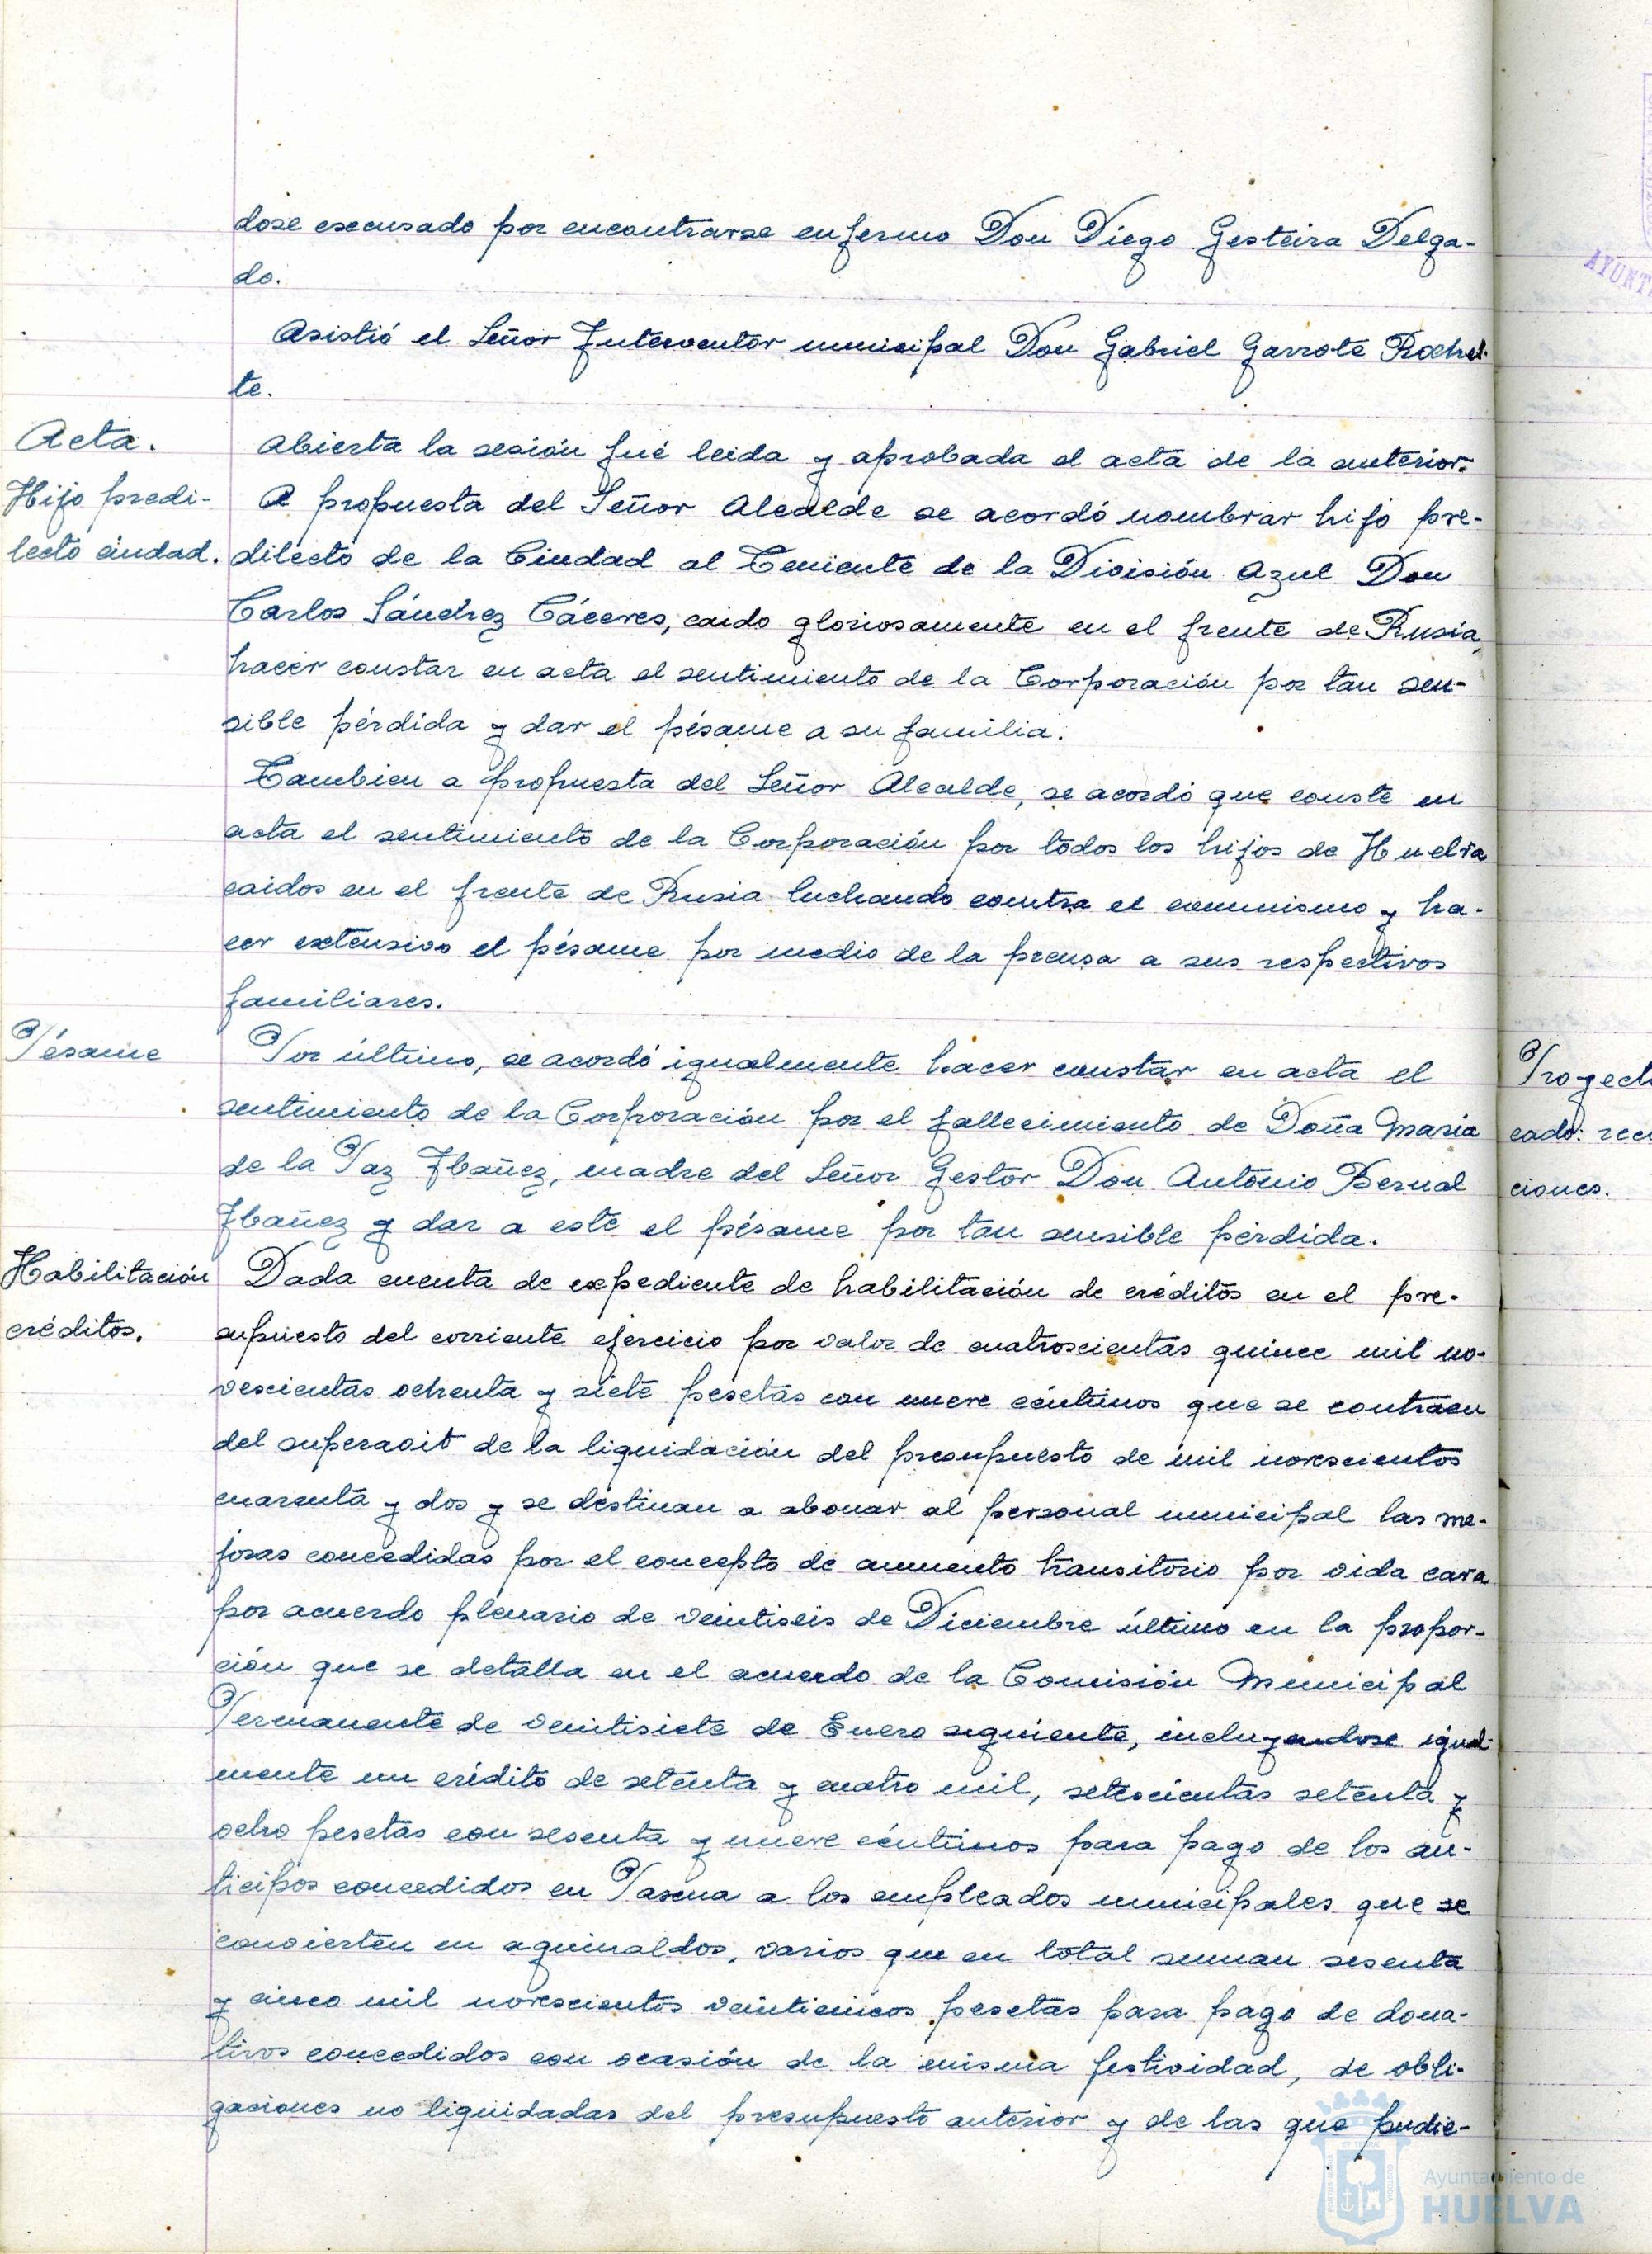 dose escusado por encontrarse enfermo Don Diego Gesteira Delga-
do.
Asistió el Señor Interventor municipal Don Gabriel Garrote Rochel-
te.
Acta.
Abierta la sesión fué leida y aprobada el acta de la anterior.
Hijo predi-
lecto ciudad.
A propuesta del Señor Alcalde se acordó nombrar hijo pre-
dilecto de la Ciudad al Teniente de la División Azul Don
Carlos Sánchez Cáceres, caido gloriosamente en el frente de Rusia,
hacer constar en acta el sentimiento de la Corporación por tan sen-
sible pérdida y dar el pésame a su familia.
Tambien a propuesta del Señor Alcalde, se acordó que conste en
acta el sentimiento de la Corporación por todos los hijos de Huelva
caidos en el frente de Rusia luchando contra el comunismo y ha-
cer extensivo el pésame por medio de la prensa a sus respectivos
familiares.
Pésame
Por último, se acordó igualmente hacer constar en acta el
sentimiento de la Corporación por el fallecimiento de Doña Maria
de la Paz Ibañez, madre del Señor Gestor Don Antonio Bernal
Ibañez y dar a este el pésame por tan sensible pérdida.
Habilitación
créditos.
Dada cuenta de expediente de habilitación de créditos en el pre-
supuesto del corriente ejercicio por valor de cuatroscientas quince mil no-
vescientas ochenta y siete pesetas con nueve céntimos que se contraen
del superavit de la liquidación del presupuesto de mil novescientos
cuarenta y dos y se destinan a abonar al personal municipal las me-
joras concedidas por el concepto de aumento transitorio por vida cara
por acuerdo plenario de veintiseis de Diciembre último en la propor-
ción que se detalla en el acuerdo de la Comisión Municipal
Permanente de veintisiete de Enero seguiente, incluyendose igual-
mente un crédito de setenta y cuatro mil, setescientas setenta y
ocho pesetas con sesenta y nueve céntimos para pago de los an-
ticipos concedidos en Pascua a los empleados municipales que se
convierten en aguinaldos, varios que en total suman sesenta
y cinco mil novescientos veinticincos pesetas para pago de dona-
tivos concedidos con ocasión de la misma festividad, de obli-
gaciones no liquidadas del presupuesto anterior y de las que pudie-
Proyect
cado: rec
ciones.
AYUNT
Ayuntamiento de
HUELVA